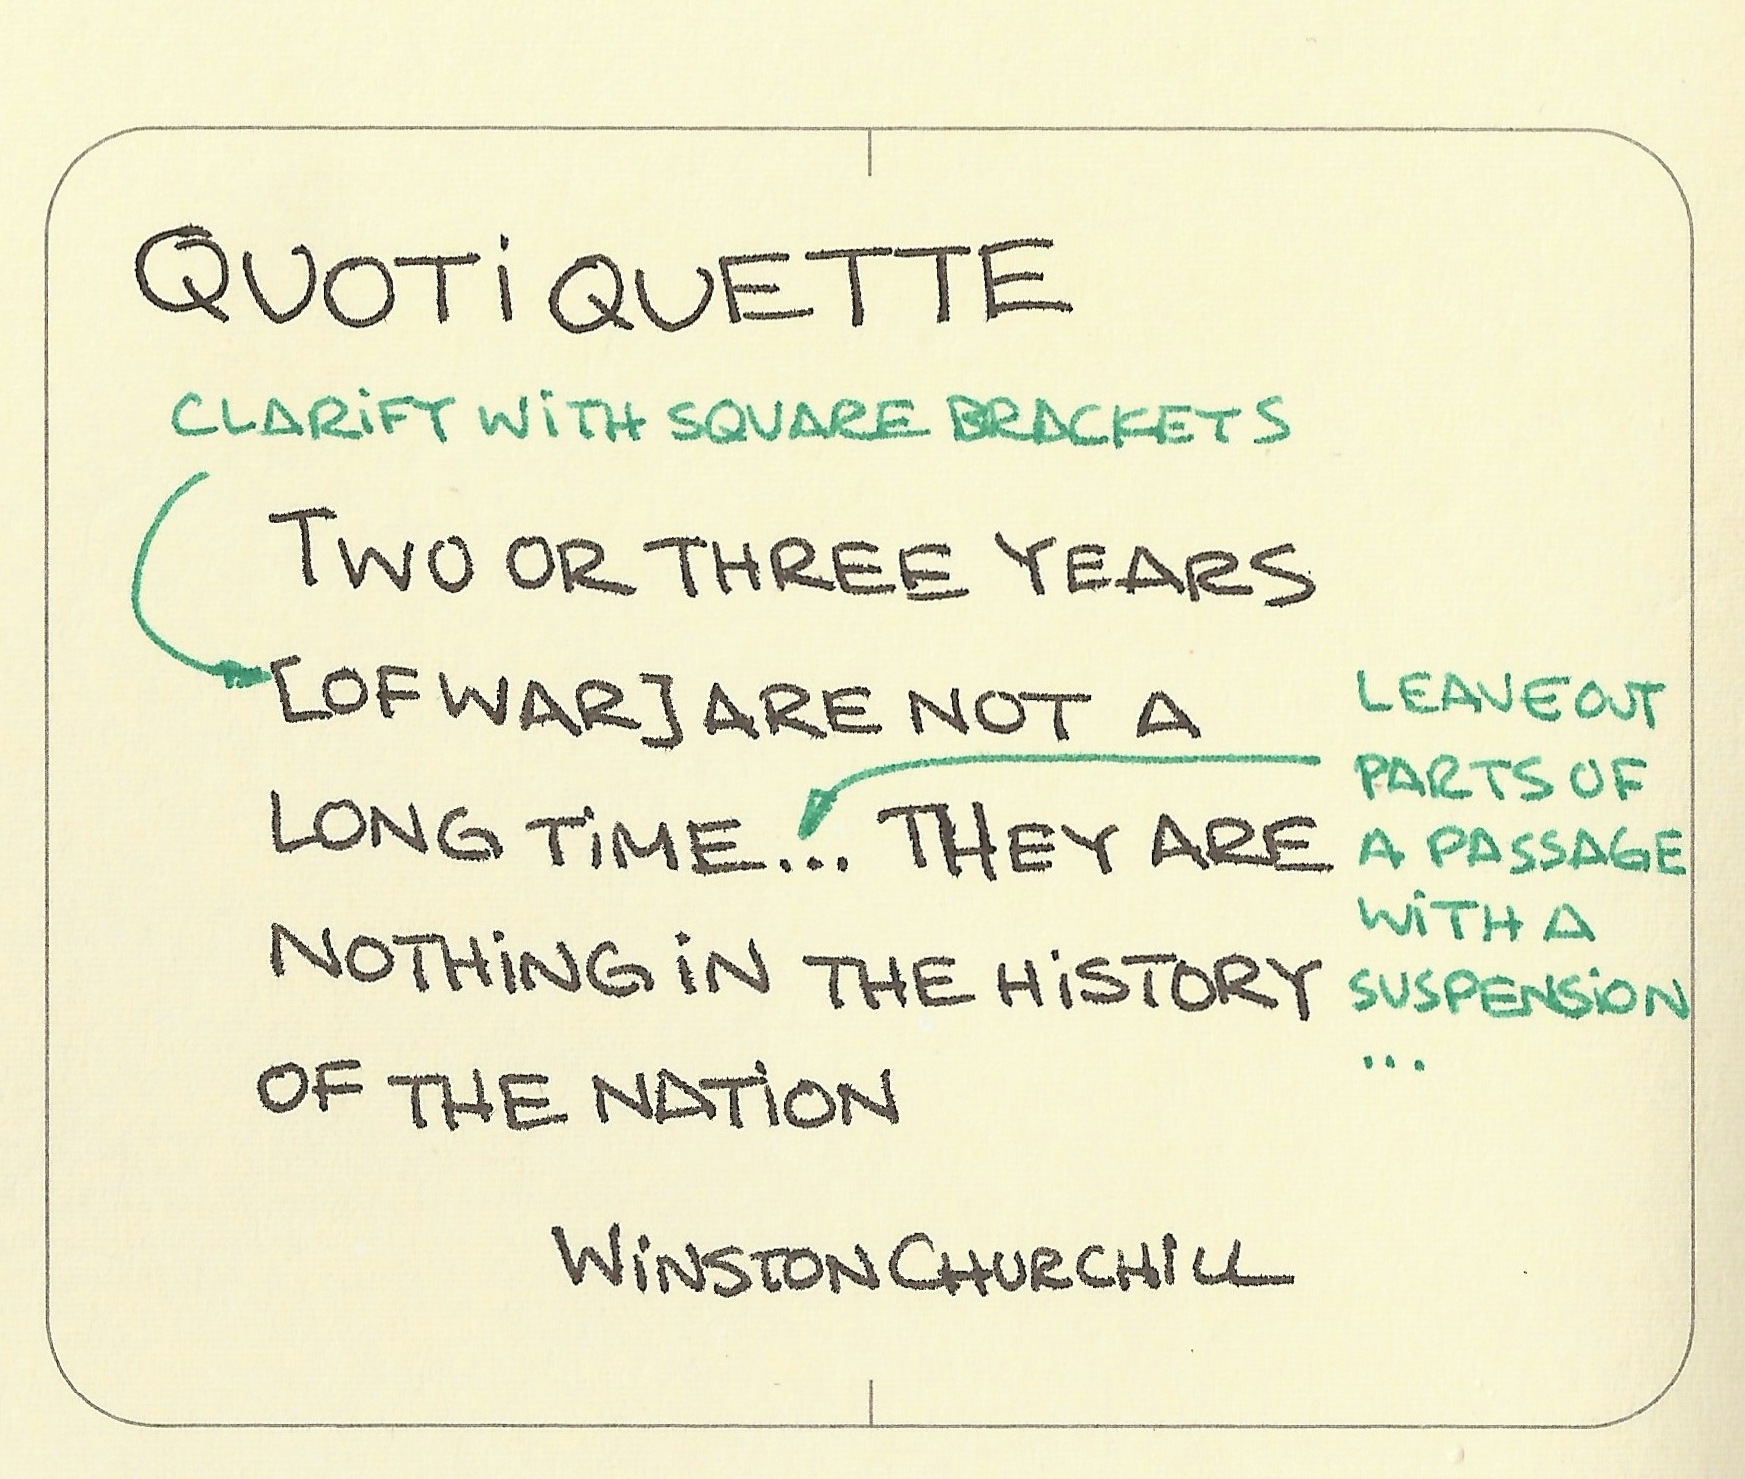 QUOTiQUETTE
CLARiFY WiTH SQUARE BRACKETS
TWO OR THREE YEARS
[OF WAR] ARE NOT A
LONG TiME... THEY ARE
NOTHiNG iN THE HiSTORY
OF THE NATiON
LEAVE OUT
PARTS OF
A PASSAGE
WiTH A
SUSPENSiON
...
WiNSTON CHURCHiLL